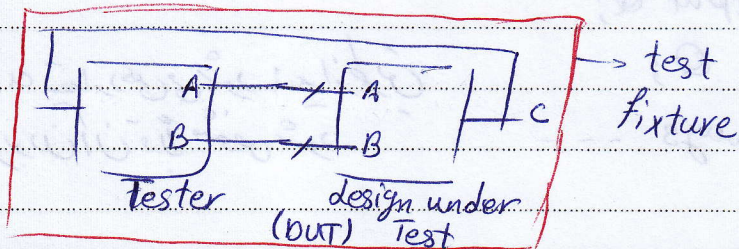 A A
B B
C
test
fixture
Tester
design under
(DUT) Test